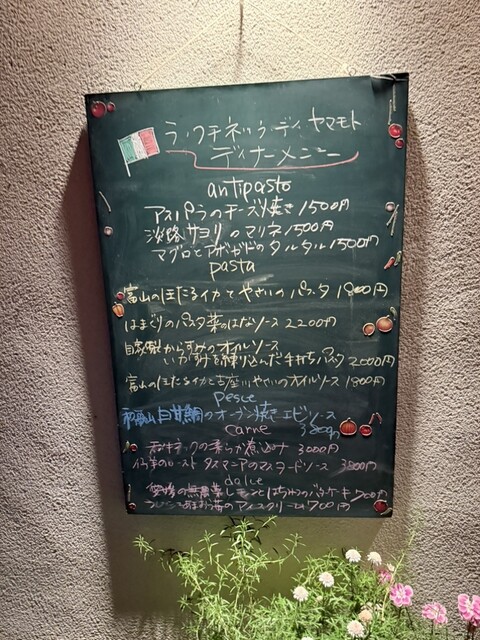 ラ・クチネッタ・ディ・ヤマモト
ディナーメニュー
antipasto
アスパラのチーズ焼き 1500円
淡路サヨリのマリネ 1500円
マグロとアボカドのタルタル 1500円
pasta
富山のほたるイカとやさいのパスタ 1900円
はまぐりのパスタ菜のはなソース 2200円
自家製からすみのオイルソース
いかすみを練り込んだ手打ちパスタ 2000円
富山のほたるイカと古座川やさいのオイルソース 1900円
Pesce
和歌山 白甘鯛のオーブン焼きエビソース
3800円
carne
ホホ肉の柔らか煮込み 3000円
仔羊のロースト タスマニアのマスタードソース 3800円
dolce
無農薬レモンとはちみつのパウンドケーキ 700円
アイスクリーム 700円